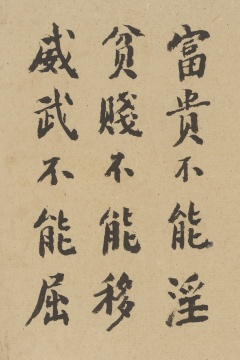 富貴不能淫
貧賤不能移
威武不能屈